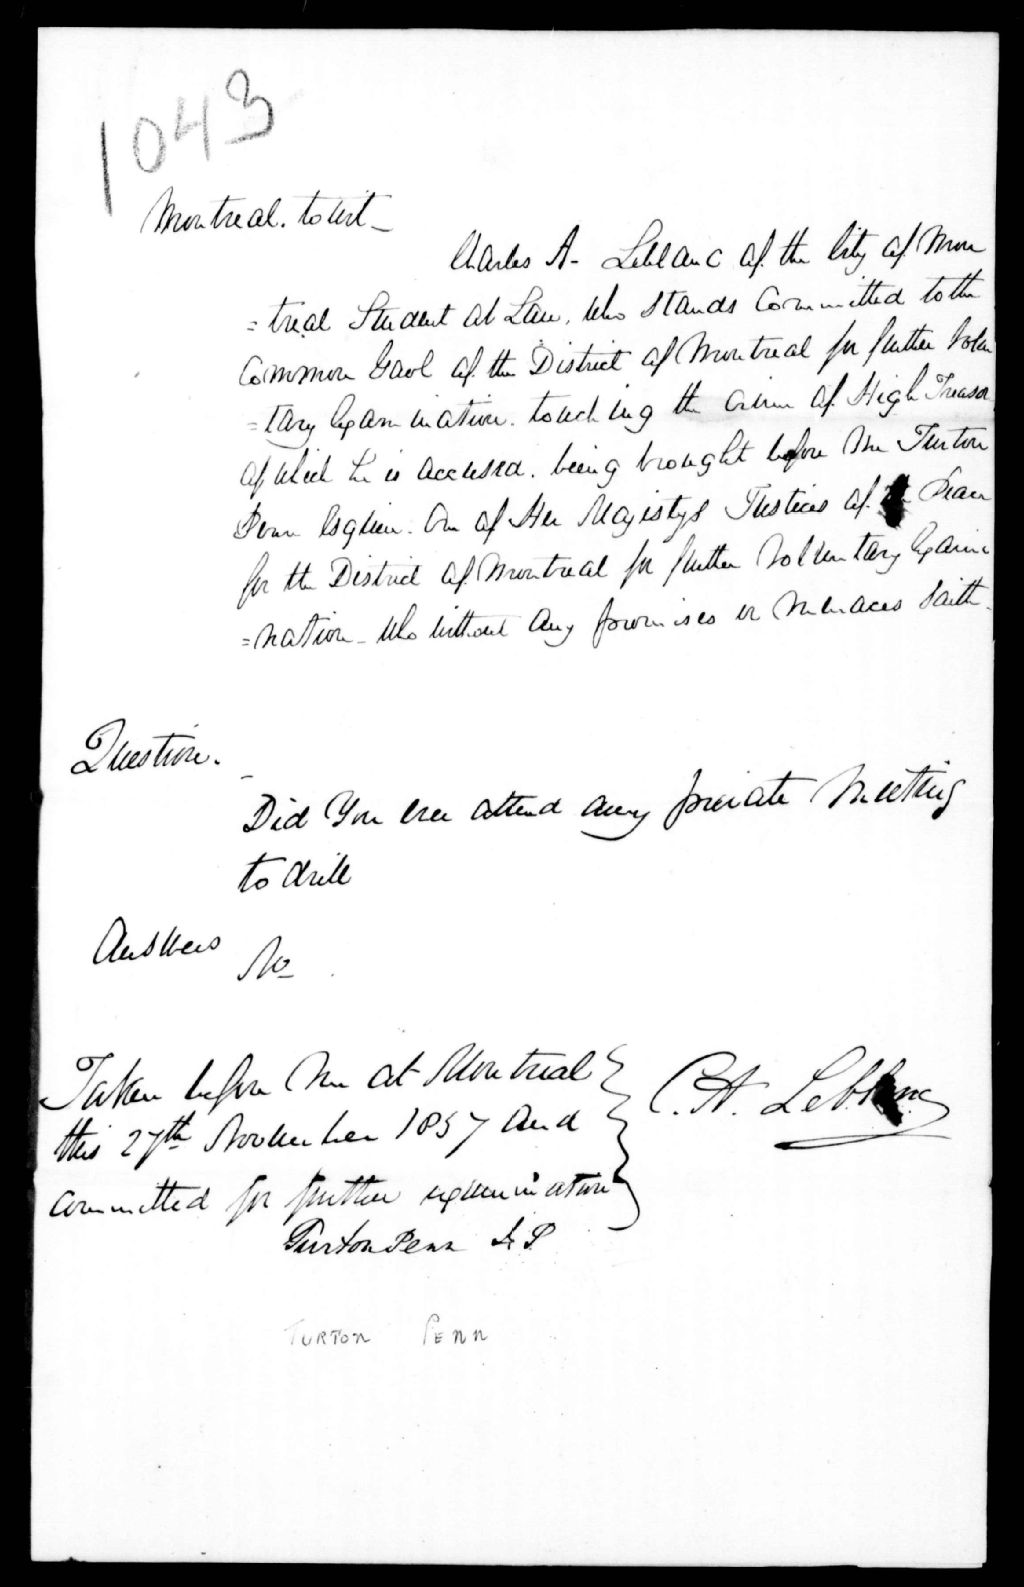 1043
Montreal. to wit _
Charles A- Leblanc of the City of Mon
=treal Student at Law, who stands Committed to the
Common Gaol of the District of Montreal for further Volun
=tary Examination. touching the crime of High Treason
of which he is accused. being brought before Me Turton
Penn Esquire. One of Her Majestys Justices of Peace
for the District of Montreal for further Voluntary Exami
=nation _ who without any promises or Menaces saith _
Question. _
Did You ever attend any private Meeting
to drill
Answers
No
Taken before Me at Montreal
this 27th November 1837 and
committed for further examination
Turton Penn J. P.
C. A. Leblanc
TURTON PENN